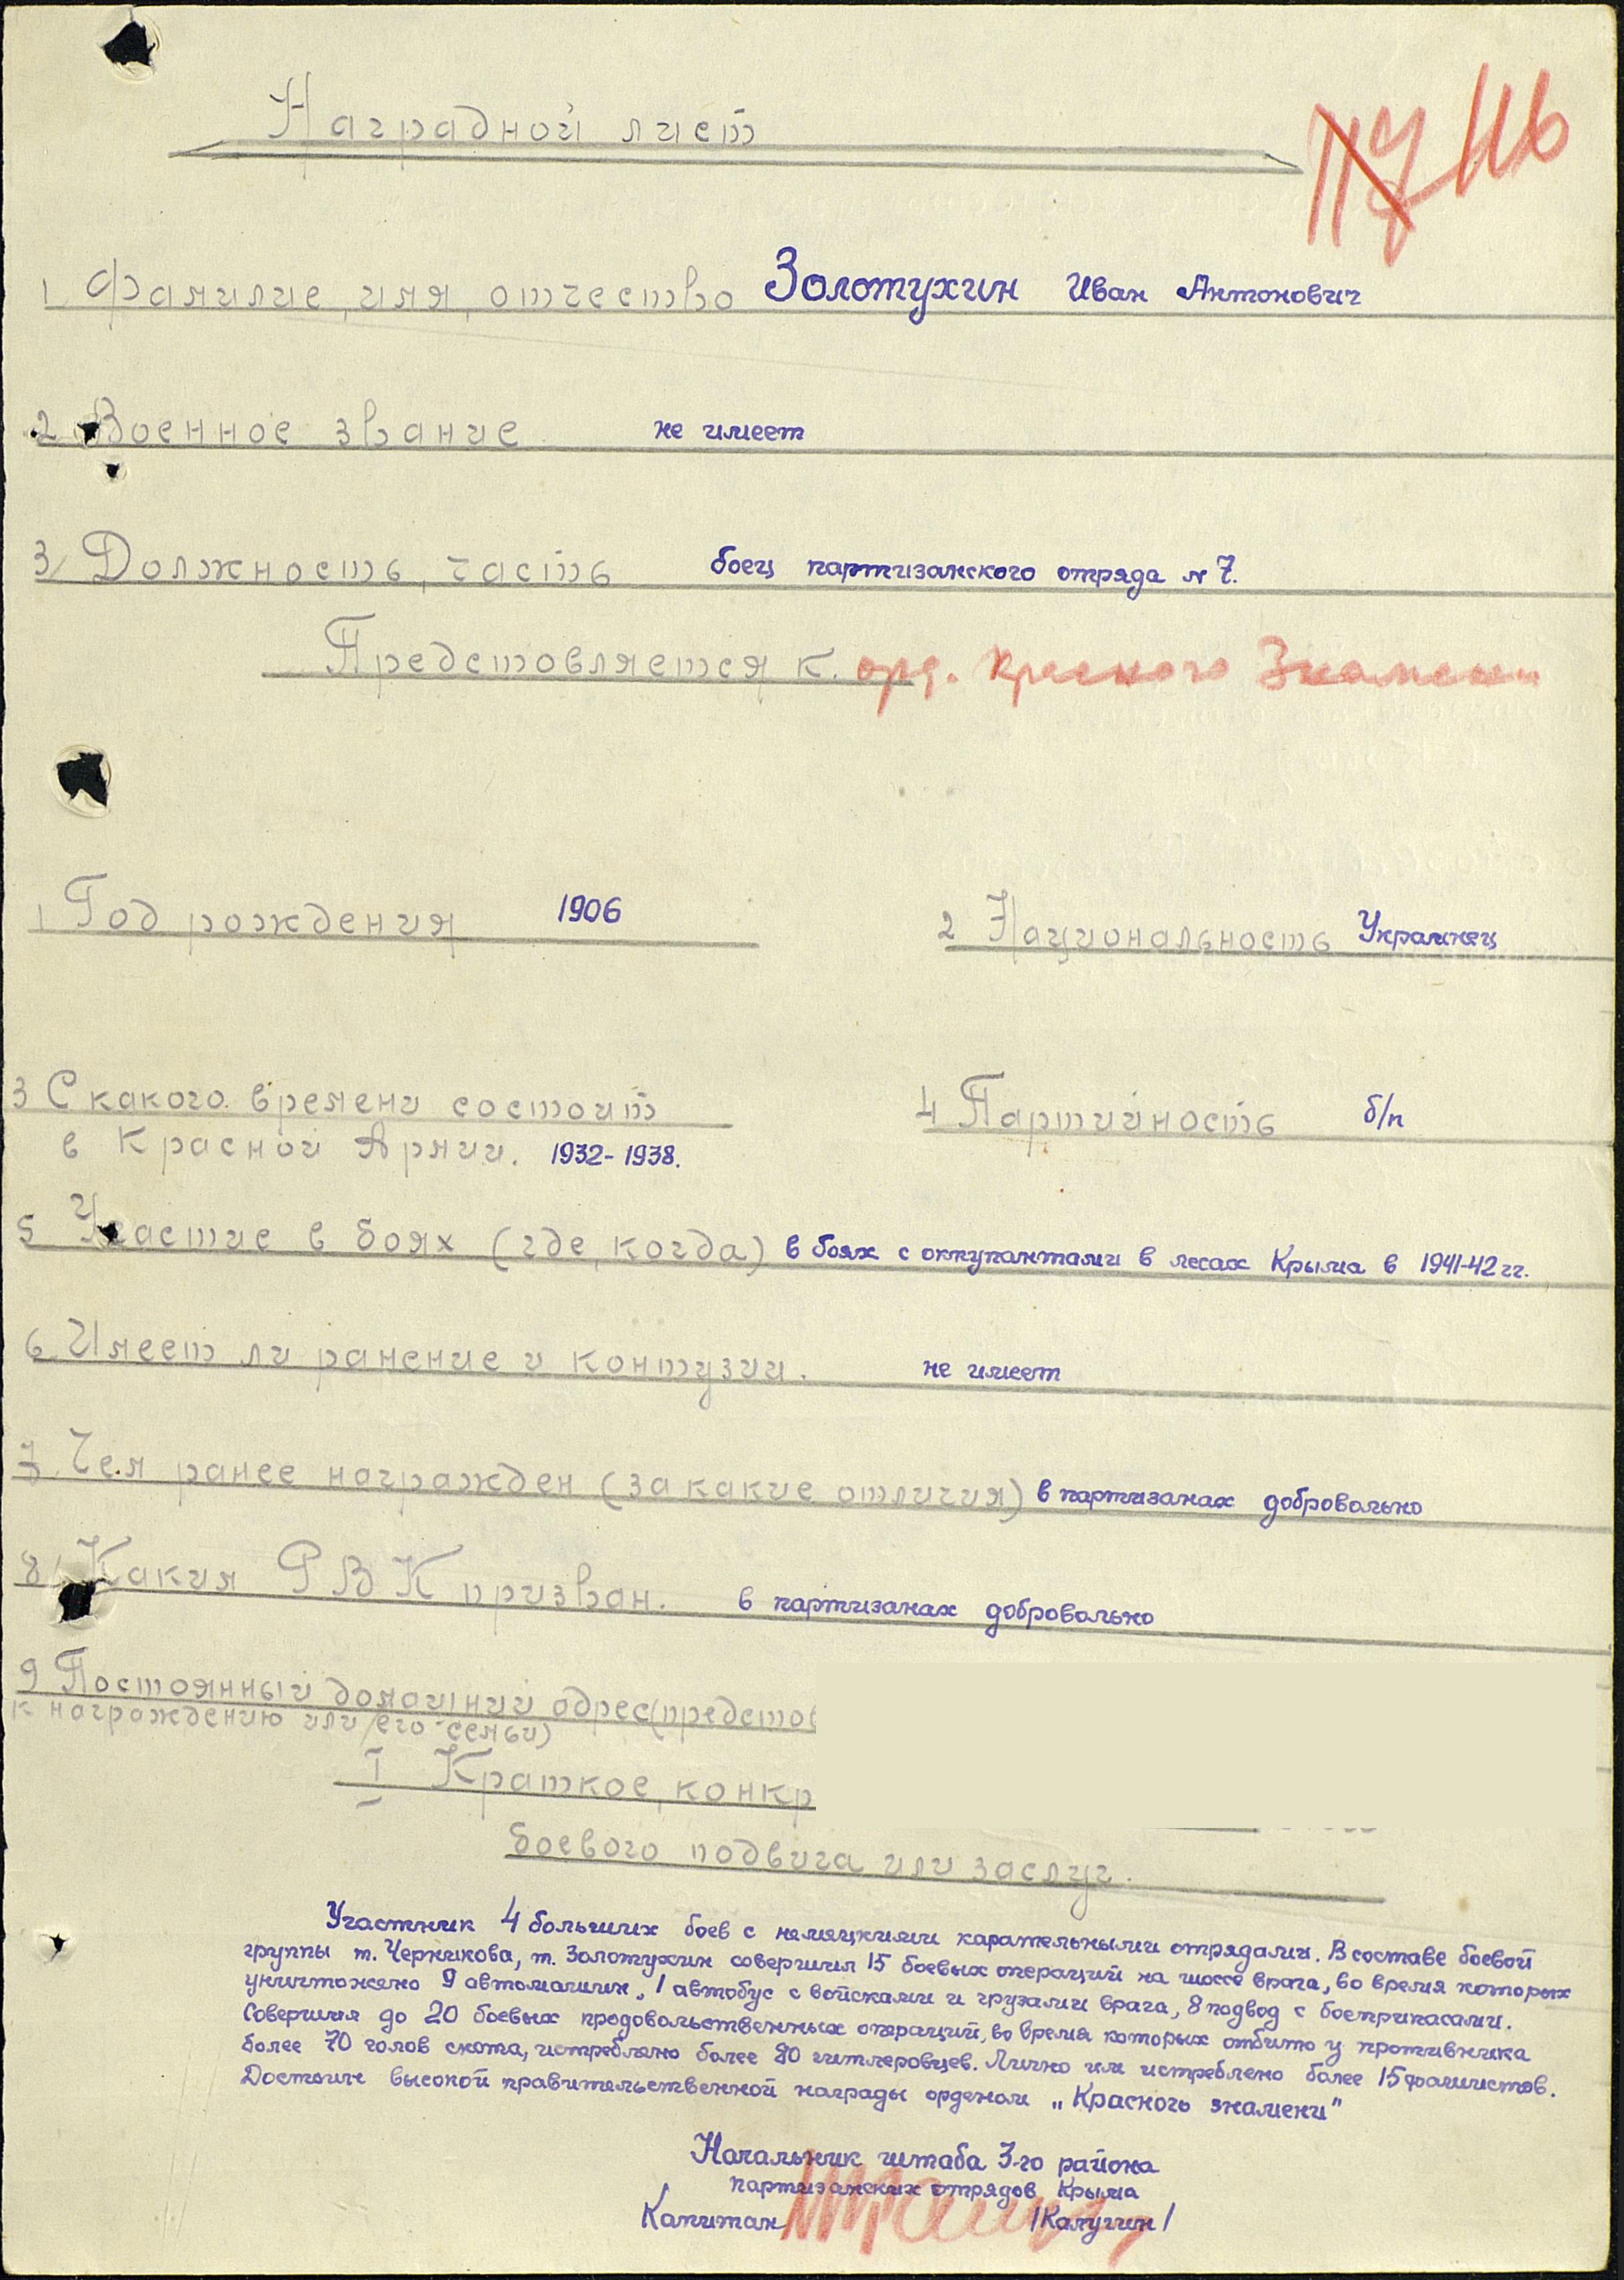 Наградной лист
116
1 Фамилие, имя, отчество Золотухин Иван Антонович
2 Военное звание не имеет
3/ Должность, часть боец партизанского отряда N 7.
Предстовляется к. орд. Красного Знамени
1 Год рождения 1906
2 Национальность Украинец
3 С какого времени состоит
в Красной Армии. 1932-1938.
4 Партийность б/п
5 Участие в боях (где, когда) в боях с оккупантами в лесах Крыма в 1941-42 гг.
6 Имеет ли ранение и контузии. не имеет
7. Чем ранее награжден (за какие отличия) в партизанах добровольно
8/ Каким РВК призван. в партизанах добровольно
9 Постоянный домашний адрес (предстов
к награждению или его семьи)
I Краткое, конкр
боевого подвига или заслуг.
Участник 4 больших боев с немецкими карательными отрядами. В составе боевой
группы т. Черникова, т. Золотухин совершил 15 боевых операций на шоссе врага, во время которых
уничтожено 9 автомашин, 1 автобус с войсками и грузами врага, 8 подвод с боеприпасами.
Совершил до 20 боевых продовольственных операций, во время которых отбито у противника
более 70 голов скота, истреблено более 80 гитлеровцев. Лично им истреблено более 15 фашистов.
Достоин высокой правительственной награды орденом „Красного знамени"
Начальник штаба 3-го района
партизанских отрядов Крыма
Капитан /Калугин/